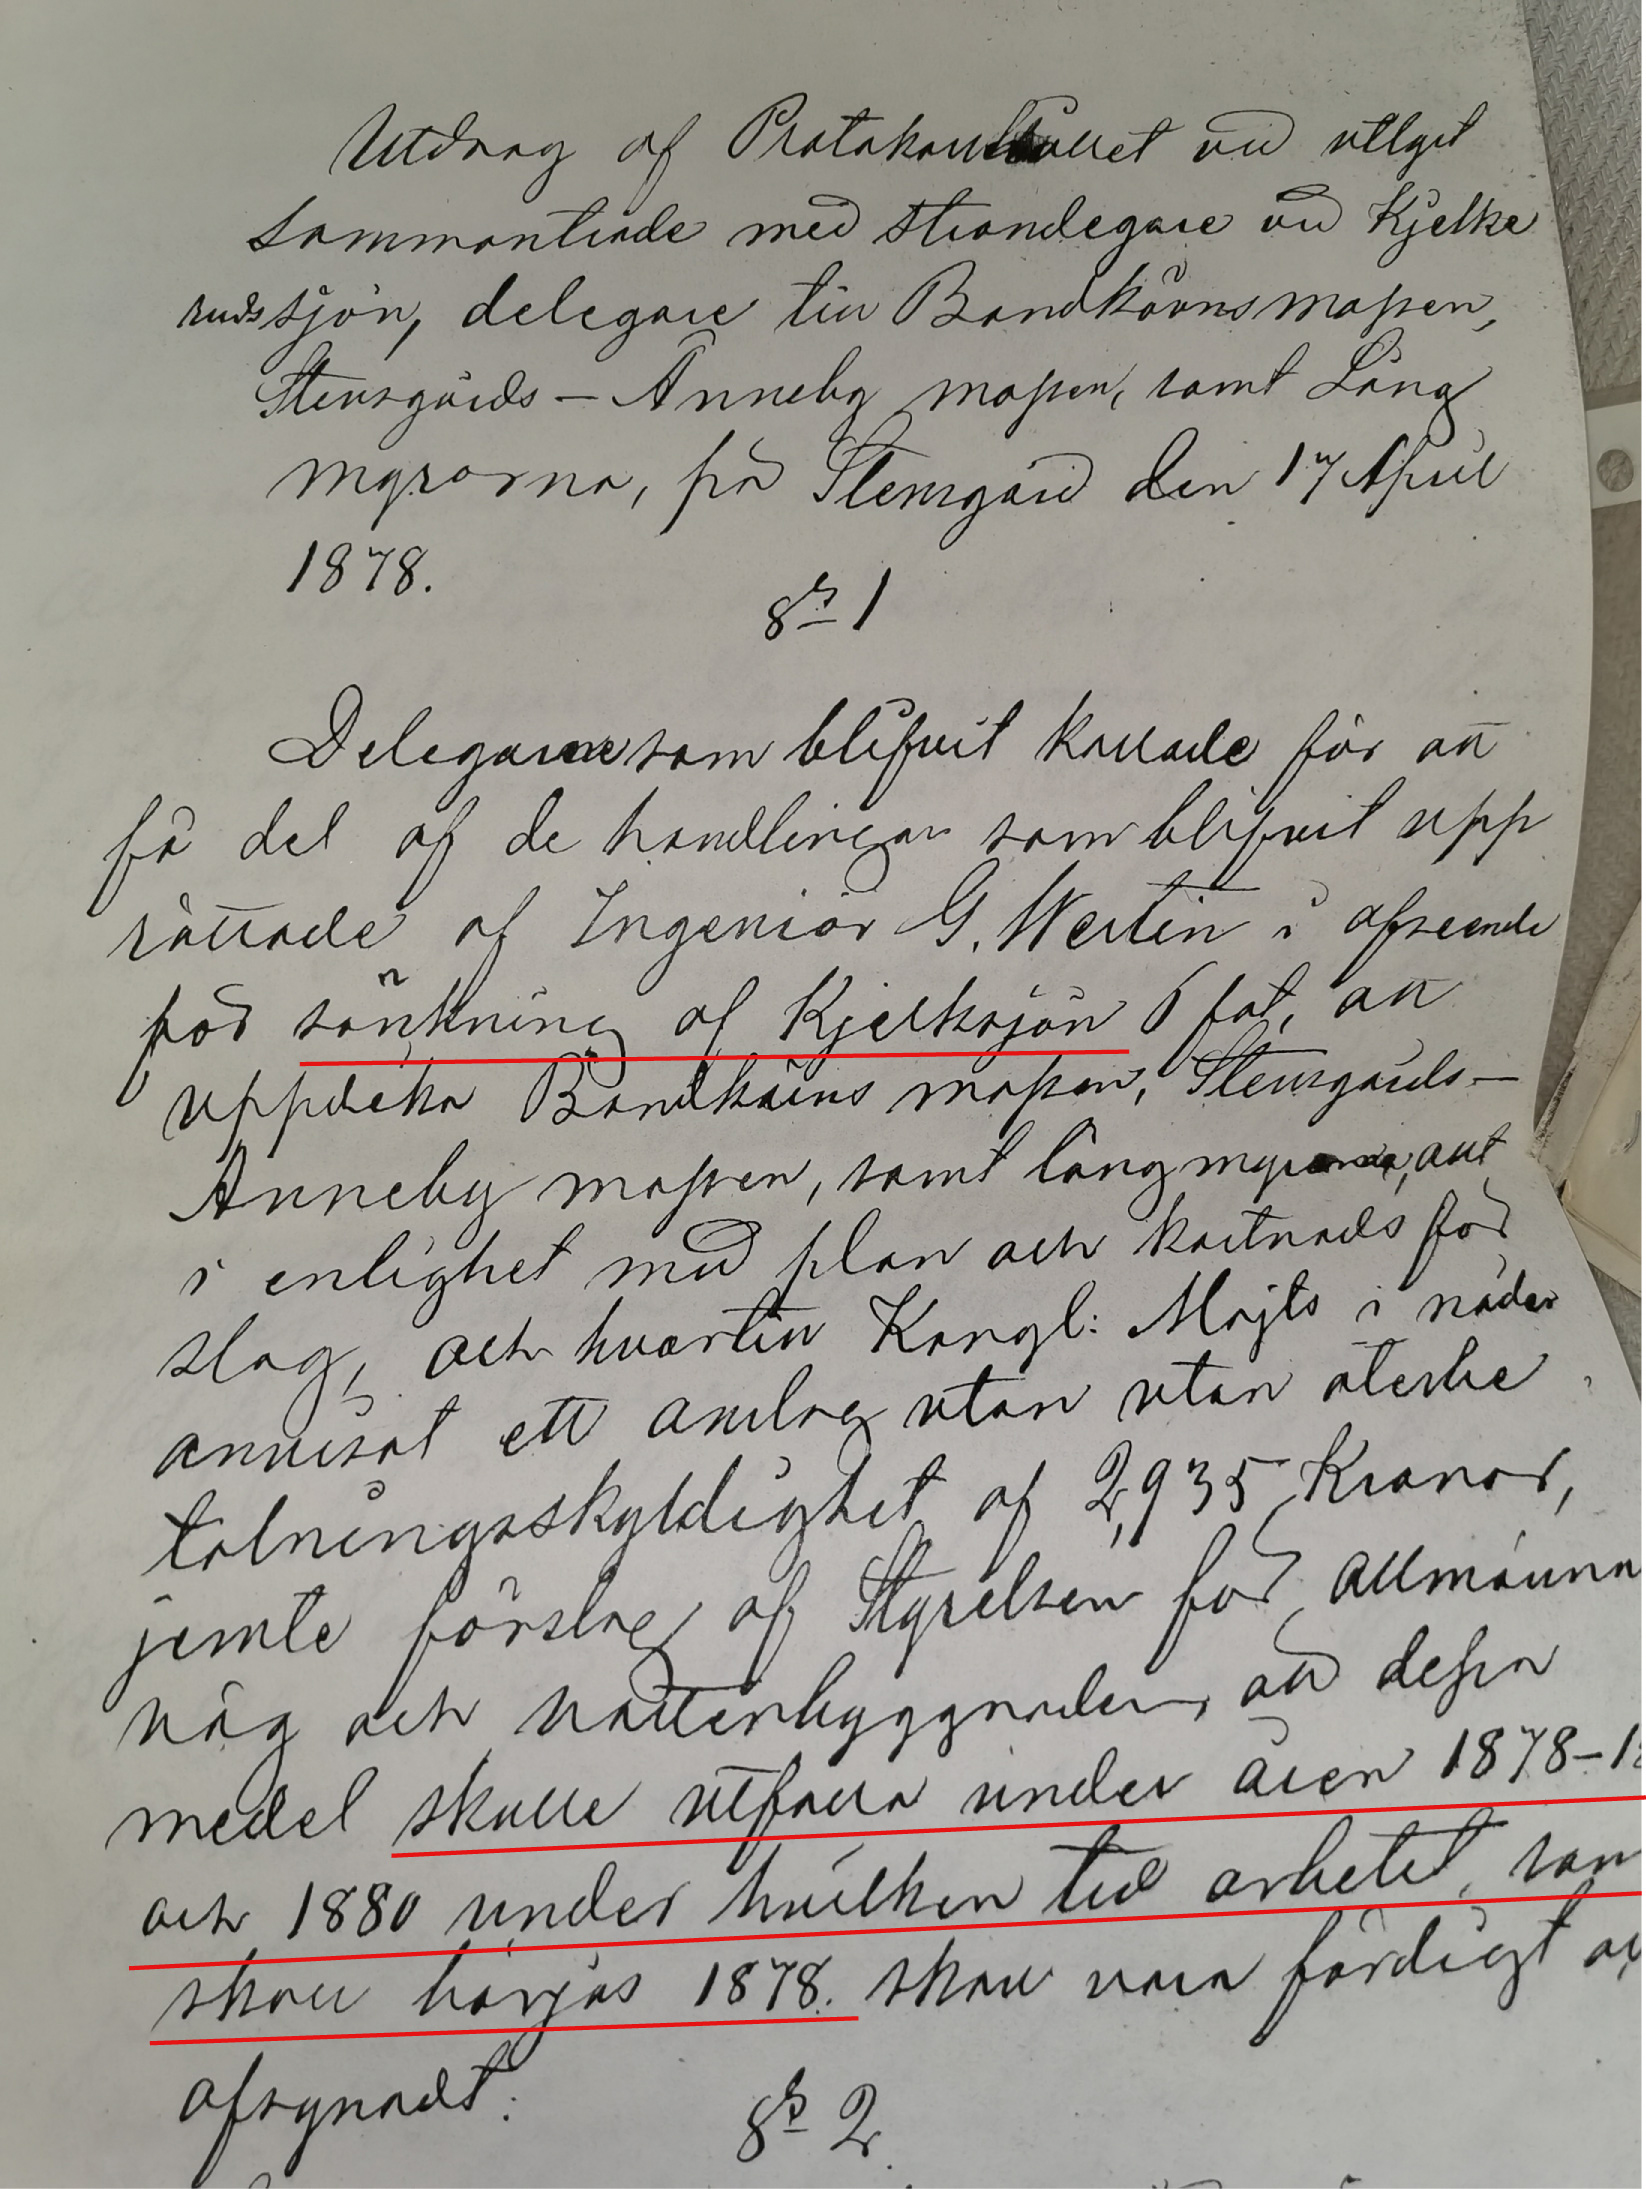 Utdrag af Protokollet vid utlyst
sammanträde med strandegare vid Kjelke
rudssjön, delegare till Bandkärnsmossen,
Stensgårds – Ånneby mossen, samt Lång
myrorna, på Stensgård den 17 April
1878.
§ 1
Delegare som blifvit kallade för att
få del af de handlingar som blifvit upp
rättade af Ingeniör G. Wertin i afseende
för sänkning af Kjelksjön 6 fot, att
uppdika Bandkärns mossen, Stensgårds –
Ånneby mossen, samt lång myrorna, allt
i enlighet med plan och kostnads för
slag, och hvartill Kongl: Majts i nåder
anvisat ett anslag utan utan återbe
talningsskyldighet af 2,935 Kronor,
jemte förslag af Styrelsen för allmänna
väg och vattenbyggnader, att dessa
medel skulle utfalla under åren 1878–1
och 1880 under hvilken tid arbetet, som
skall börjas 1878. skall vara färdigt
afsynadt.
§ 2